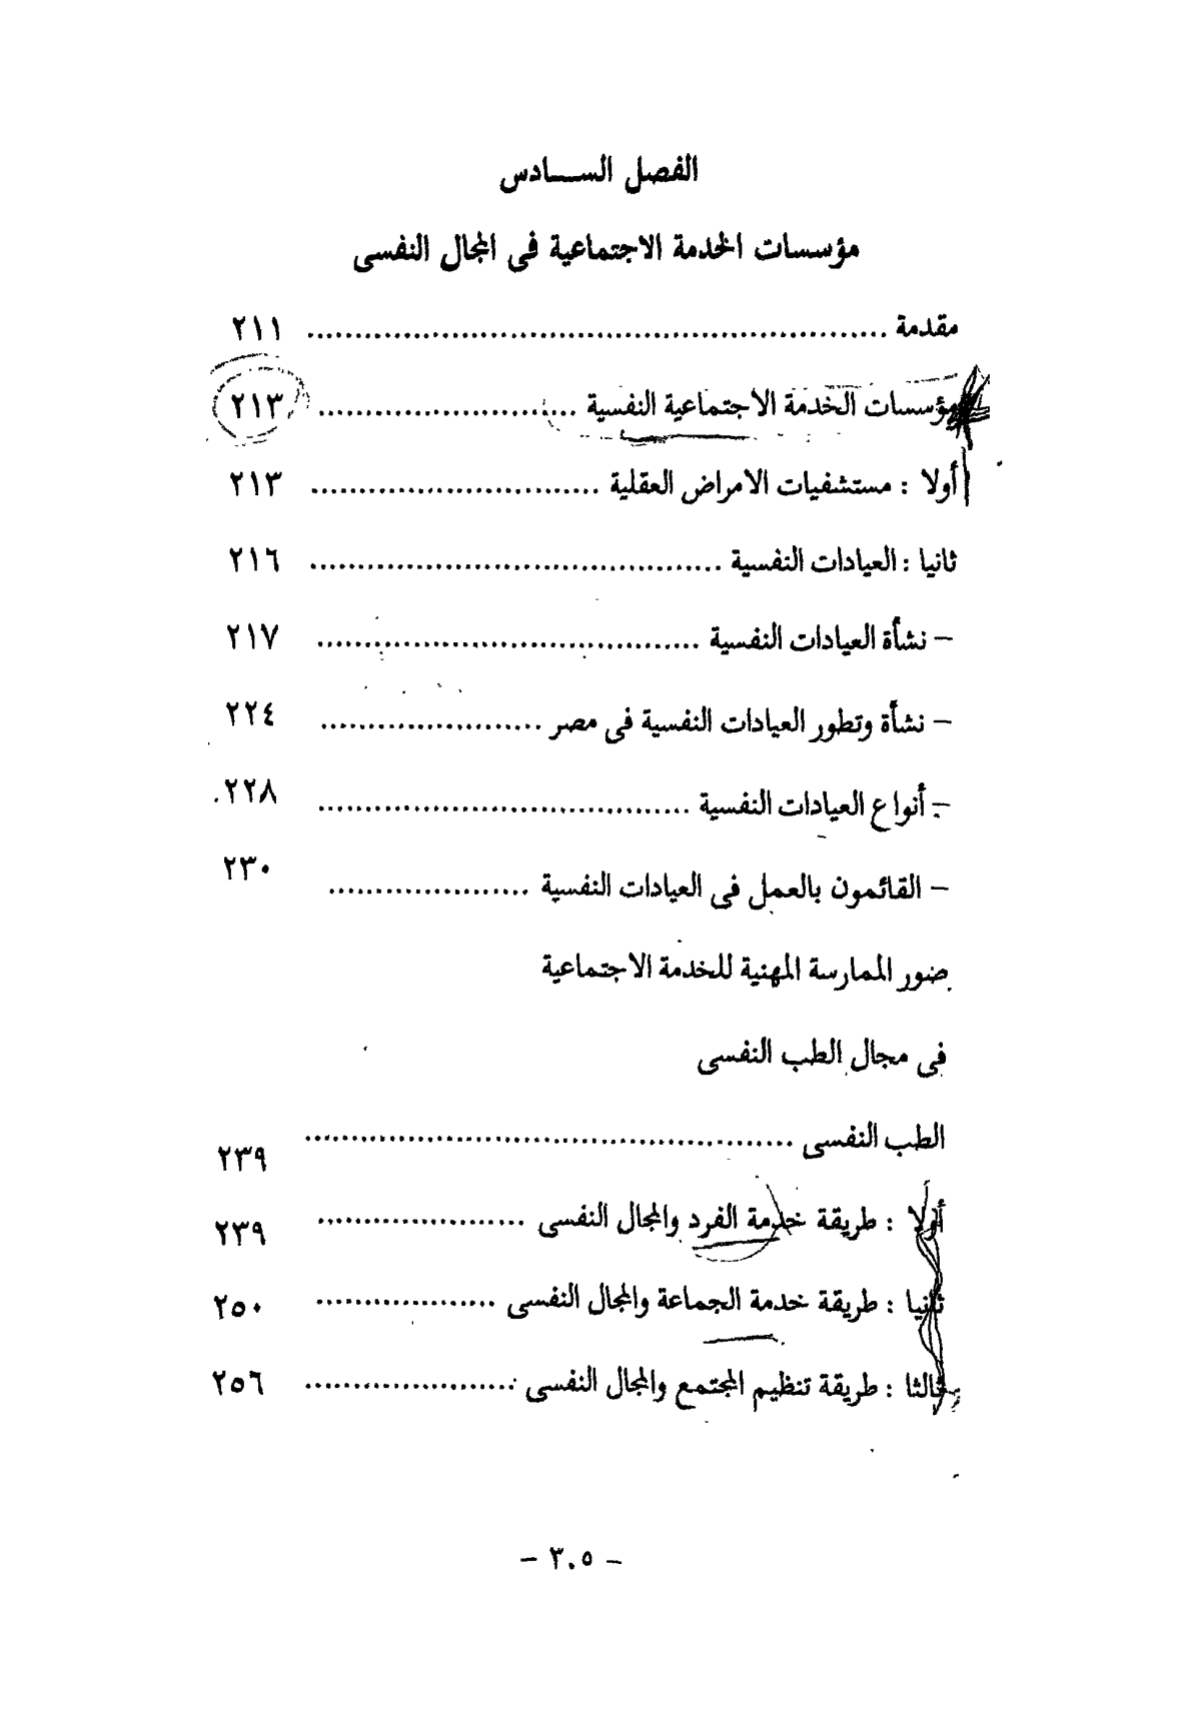 الفصل الســـادس
مؤسسات الخدمة الاجتماعية فى المجال النفسى
مقدمة ............................................................ ٢١١
مؤسسات الخدمة الاجتماعية النفسية ........................... ٢١٣
أولا : مستشفيات الامراض العقلية .............................. ٢١٣
ثانيا : العيادات النفسية ........................................... ٢١٦
– نشأة العيادات النفسية ........................................ ٢١٧
– نشأة وتطور العيادات النفسية فى مصر ....................... ٢٢٤
– أنواع العيادات النفسية ....................................... ٢٢٨
– القائمون بالعمل فى العيادات النفسية ..................... ٢٣٠
صور الممارسة المهنية للخدمة الاجتماعية
فى مجال الطب النفسى
الطب النفسى ................................................... ٢٣٩
أولا : طريقة خدمة الفرد والمجال النفسى ...................... ٢٣٩
ثانيا : طريقة خدمة الجماعة والمجال النفسى ................... ٢٥٠
ثالثا : طريقة تنظيم المجتمع والمجال النفسى ...................... ٢٥٦
– ٣٠٥ –